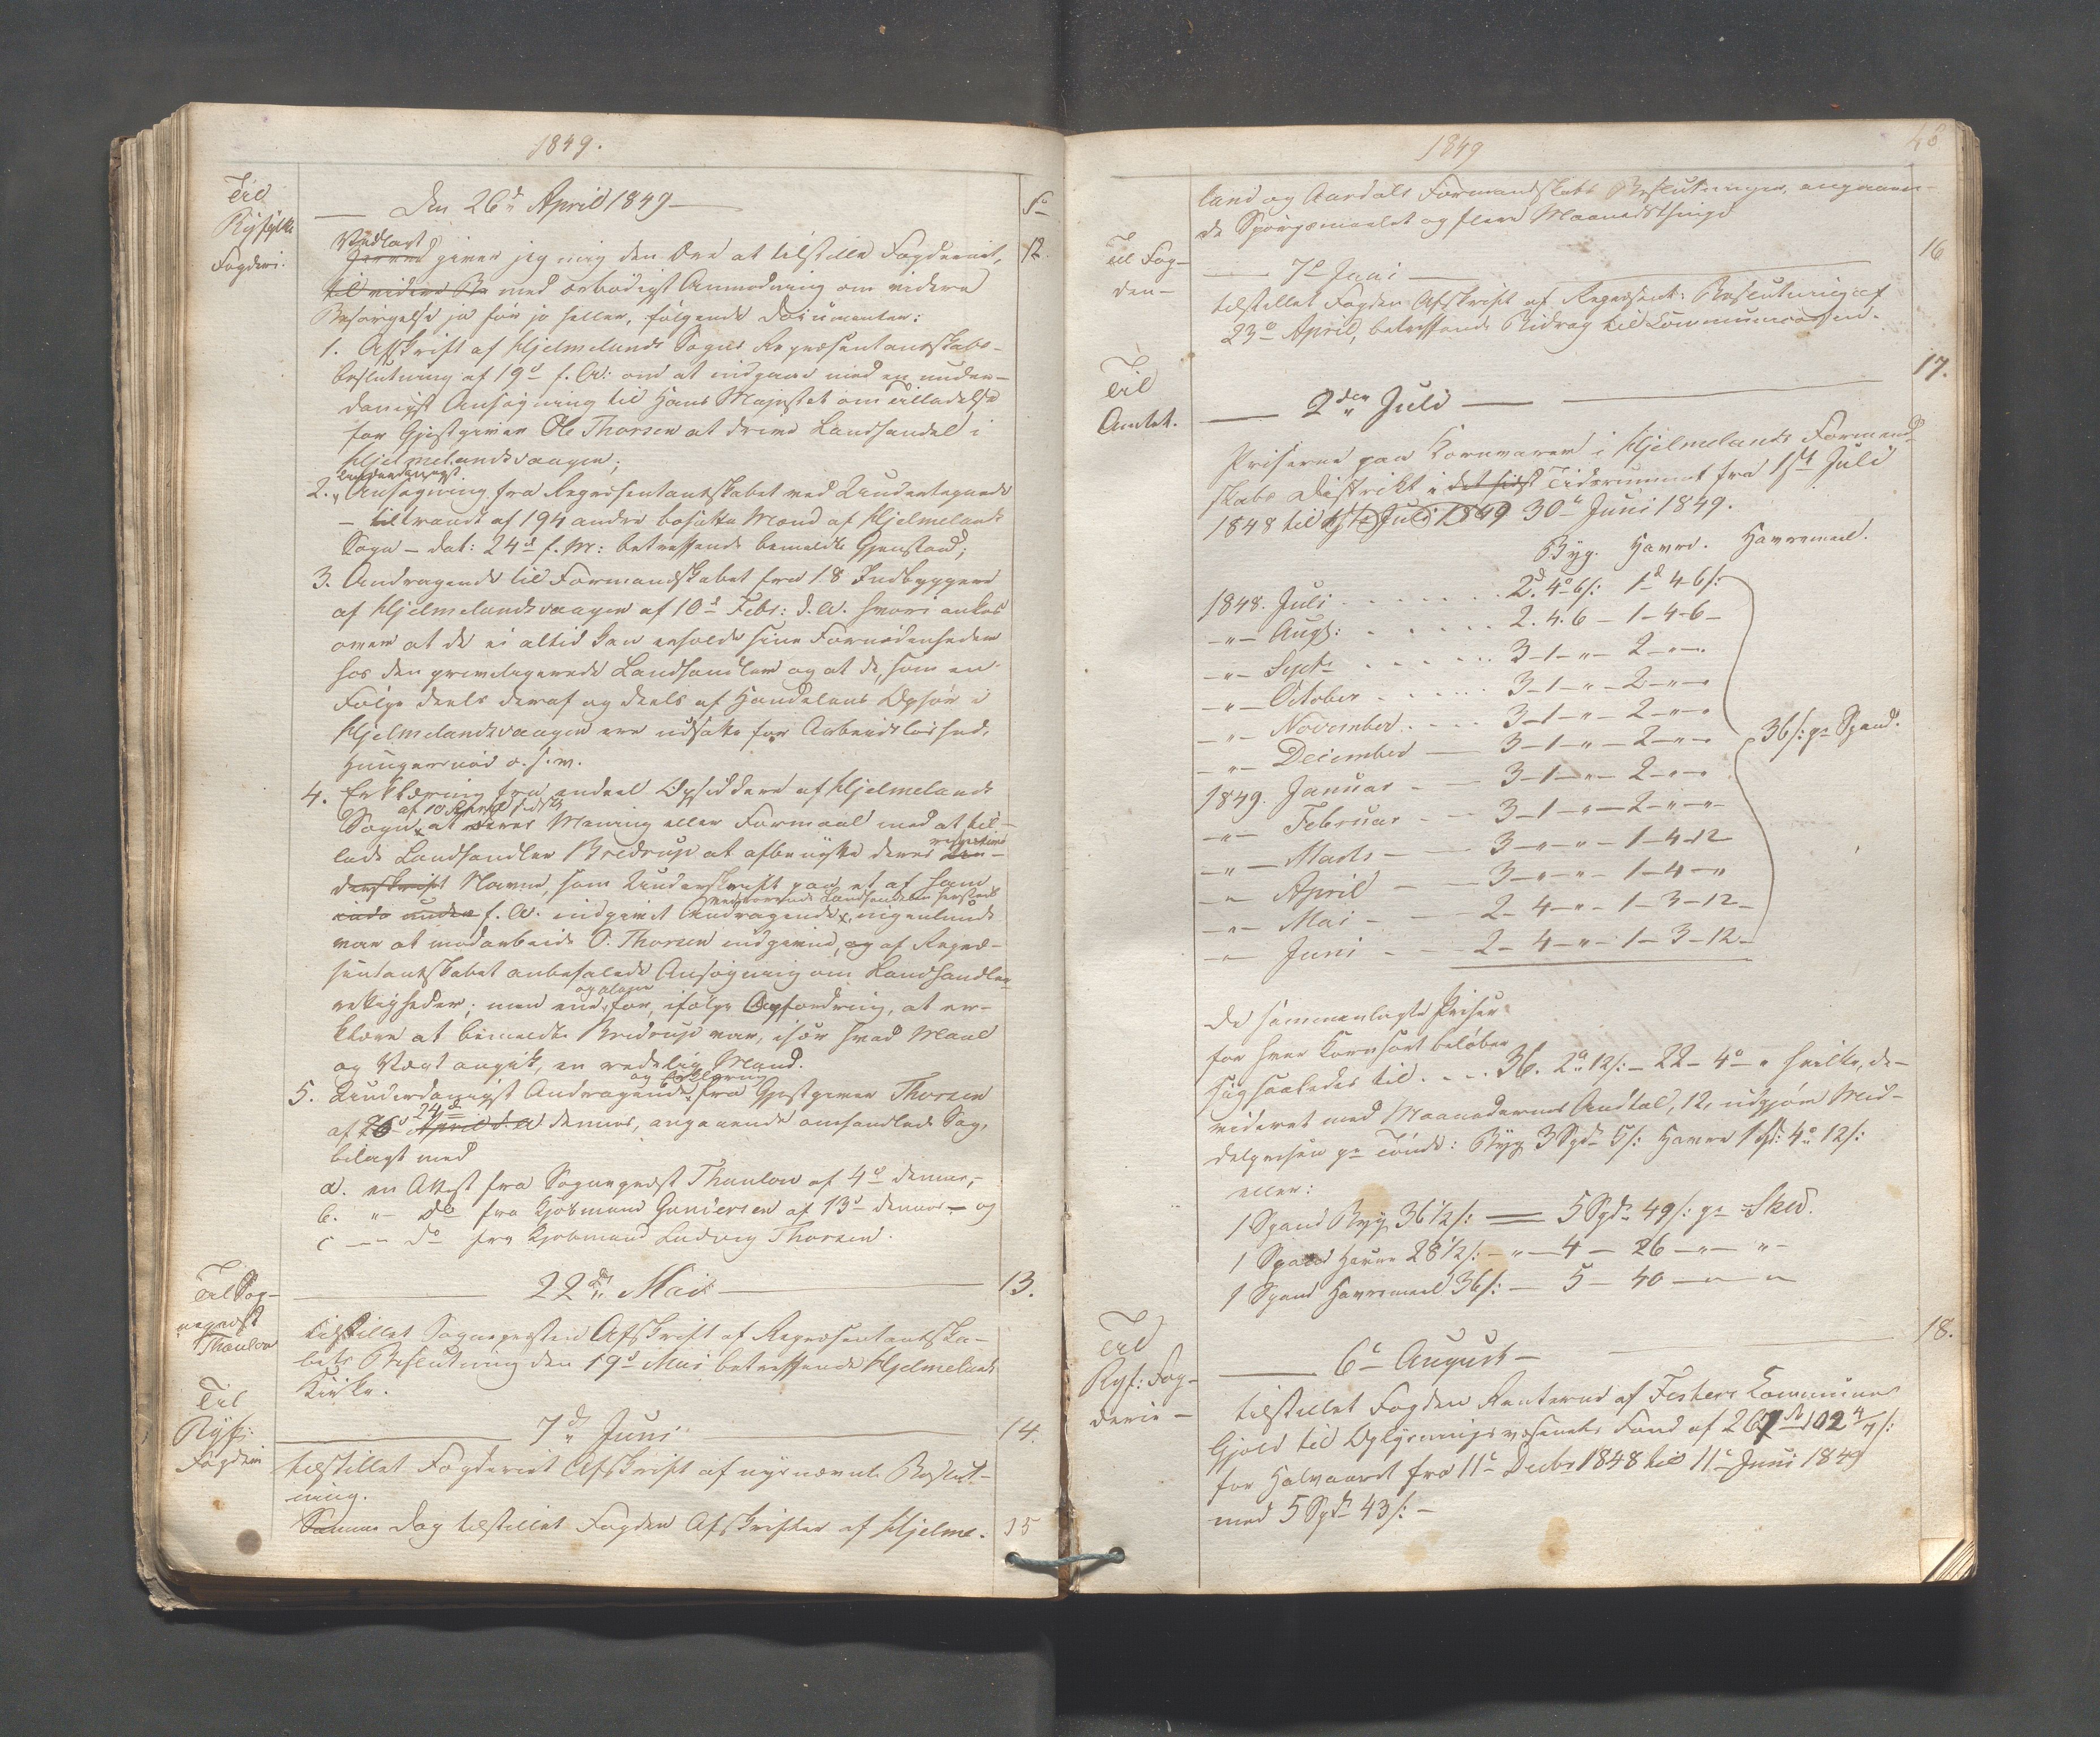 1849.
Til
Ryfylke
Fogderi.
Den 26de April 1849
No
12.
Vedlagt
Herved giver jeg mig den Ære at tilstille Fogderiet,
til videre Be med ærbødigst Anmodning om videre
Besørgelse jo før jo heller, følgende Documenter:
1. Afskrift af Hjelmelands Sogns Repræsentantskabs-
beslutning af 19d f. A: om at indgaae med en under-
danigst Ansøgning til Hans Majestæt om Tilladelse
for Gjestgiver Ole Thorsen at drive Landhandel i
Hjelmelandsvaagen;
underdanigst
2. Ansøgning fra Repræsentantskabet ved Undertegnede
- tiltraadt af 194 andre bosatte Mænd af Hjelmelands
Sogn - dat: 24d f. M: betreffende bemeldte Gjenstand;
3. Andragende til Formandskabet fra 18 Indbyggere
af Hjelmelandsvaagen af 10d Febr: d. A. hvori ankes
over at de ei altid kan erholde sine Fornødenheder
hos den privilegerede Landhandler og at de, som en
Følge deels deraf og deels af Handelens Ophør i
Hjelmelandsvaagen ere udsatte for Arbeidsløshed,
Hungersnød o. s. v.
4. Erklæring fra endeel Opsiddere af Hjelmelands
af 10 April sidst
Sogn, at deres Mening eller Formaal med at til-
lade Landhandler Bredrup at afbenytte deres
respective
derskrift Navne, som Underskrift paa et af ham
vedkommende Landhandelen herstæds
inde under f. A. indgivet Andragende, ingenlunde
var at modarbeide O. Thorsen indgivne, og af Repræ-
sentantskabet anbefalede Ansøgning om Landhandler
rettigheder; men
for, ifølge Opfordring, at er-
klære at bemeldte Bredrup var, især hvad Maal
og Vægt angik, en redelig Mand.
og Erklæring
5. Underdanigst Andragende fra Gjestgiver Thorsen
24d
af 26d April d. A dennes, angaaende omhandlede Sag,
bilagt med
a. en Attest fra Sogneprest Thaulow af 4d dennes,
b. " Do fra Kjøbmand Gundersen af 13d dennes - og
c " Do fra Kjøbmand Ludvig Thorsen.
Til Sog-
neprest
Thaulow
22de Mai
13.
tilstillet Sognepresten Afskrift af Repræsentantska-
bets Beslutning den 19d Mai betreffende Hjelmelands
Kirke.
Til
Ryf:
Fogderi
7de Juni
14.
tilstillet Fogderiet Afskrift af nysnævnte Beslut-
ning.
Samme Dag tilstillet Fogden Afskrifter af Hjelme-
15
1849
48
land og Aardals Formandskabs Beslutninger, angaaen-
de Spørgsmaalet og flere Maanedsthinge
Til Fog-
den -
7d Juni
16
tilstillet Fogden Afskrift af Repræsent: Beslutning af
23d April, betreffende Bidrag til Communecassen.
Til
Amtet.
2den Juli
17.
Priserne paa Kornvarer i Hjelmelands Formand-
skabs Distrikt i det sidst Tidsrummet fra 1ste Juli
1848 til 1ste Juli 1849 30te Juni 1849.
Byg. Havre. Havremeel.
1848. Juli . . . . . . 2d. 4o 6/: 1d 4-6/:
-"- Augs: . . . . . 2. 4. 6 - 1-4-6-
-"- Septr . . . . . 3-1-"- 2-"-"
-"- October . . . . 3-1-"-2-"-"
-"- November . . . 3-1-"- 2-"-"
-"- December - 3-1-"-2-"-"
36/: pr Spand.
1849. Januar - 3-1-"- 2-"-"
-"- Februar - 3-1-"-2-"-"
-"- Marts - 3-"-"-1-4-12
-"- April - 3-"-"- 1-4-"
-"- Mai - 2-4-"- 1-3-12-
-"- Juni - 2-4-"-1-3-12-
De sammenlagte Priser
for hver Kornsort beløber
sig saaledes til . . . 36. 2o 12/: - 22-4o " hvilke, de-
videret med Maanedernes Andtal, 12, udgjør Mid-
delprisen pr Tønde: Byg 3 Spd 5/: Havre 1 Spd: 4o 12/:
eller:
1 Spand Byg 36 1/2/: = 5 Spdr 49/: pr Skld.
1 Spand Havre 28 1/2/: -"- 4 - 26 -"- "-
1 Spand Havremeel 36/: - 5 - 40 -"- "
Til
Ryf: Fog-
derie -
6te August
18.
tilstillet Fogden Renterne af Fisters Communes
Gjeld til Oplysningsvæsenets Fond af 267 Sp 102 4/7/:
for Halvaaret fra 11te Decbr 1848 til 11te Juni 1849
med 5 Spd 43/: -